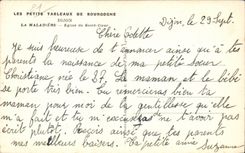 LES PETITS TABLEAUX DE BOURGOGNE
DIJON
LA MALADIÈRE - Église du Sacré-Cœur
Dijon, le 29 Sept.
Chère Odette
Je suis heureuse de t'annoncer ainsi qu'à tes
parents la naissance de ma petite sœur
Christiane née le 27. La maman et le bébé
se porte très bien. Tu remercieras bien ta
maman pour moi de la gentillesse qu'elle
m'a fait et tu m'excuseras de t'avoir pas
écrit plutôt. Reçois ainsi que tes parents
mes meilleurs baisers. Ta petite amie
Suzanne